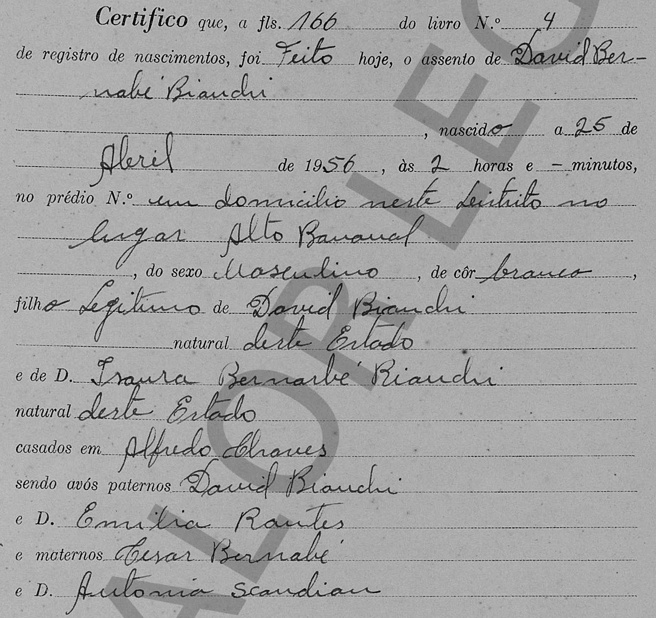 Certifico que, a fls. 166 do livro N.º 4
de registro de nascimentos, foi Feito hoje, o assento de David Ber-
nabé Bianchi
, nascido a 25 de
Abril de 1956, às 2 horas e - minutos,
no prédio N.º em domicilio neste Distrito no
lugar Alto Bananal
, do sexo Masculino, de côr branca,
filho Legitimo de David Bianchi
natural deste Estado
e de D. Isaura Bernabé Bianchi
natural deste Estado
casados em Alfredo Chaves
sendo avós paternos David Bianchi
e D. Emilia
e maternos Cesar Bernabé
e D. Antonia Scandian
VALOR LEG